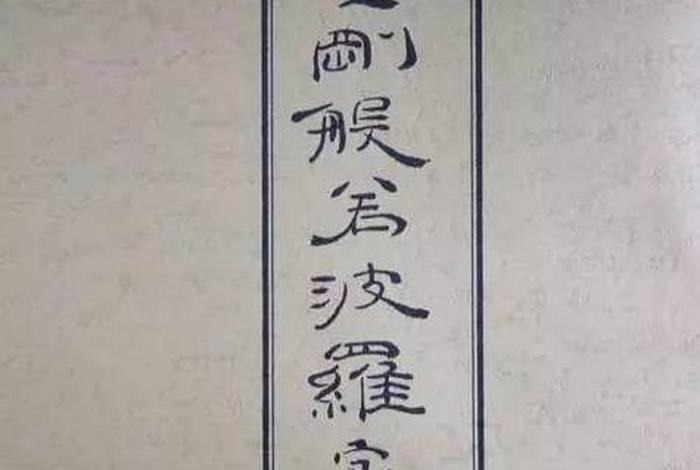 剛般若波羅